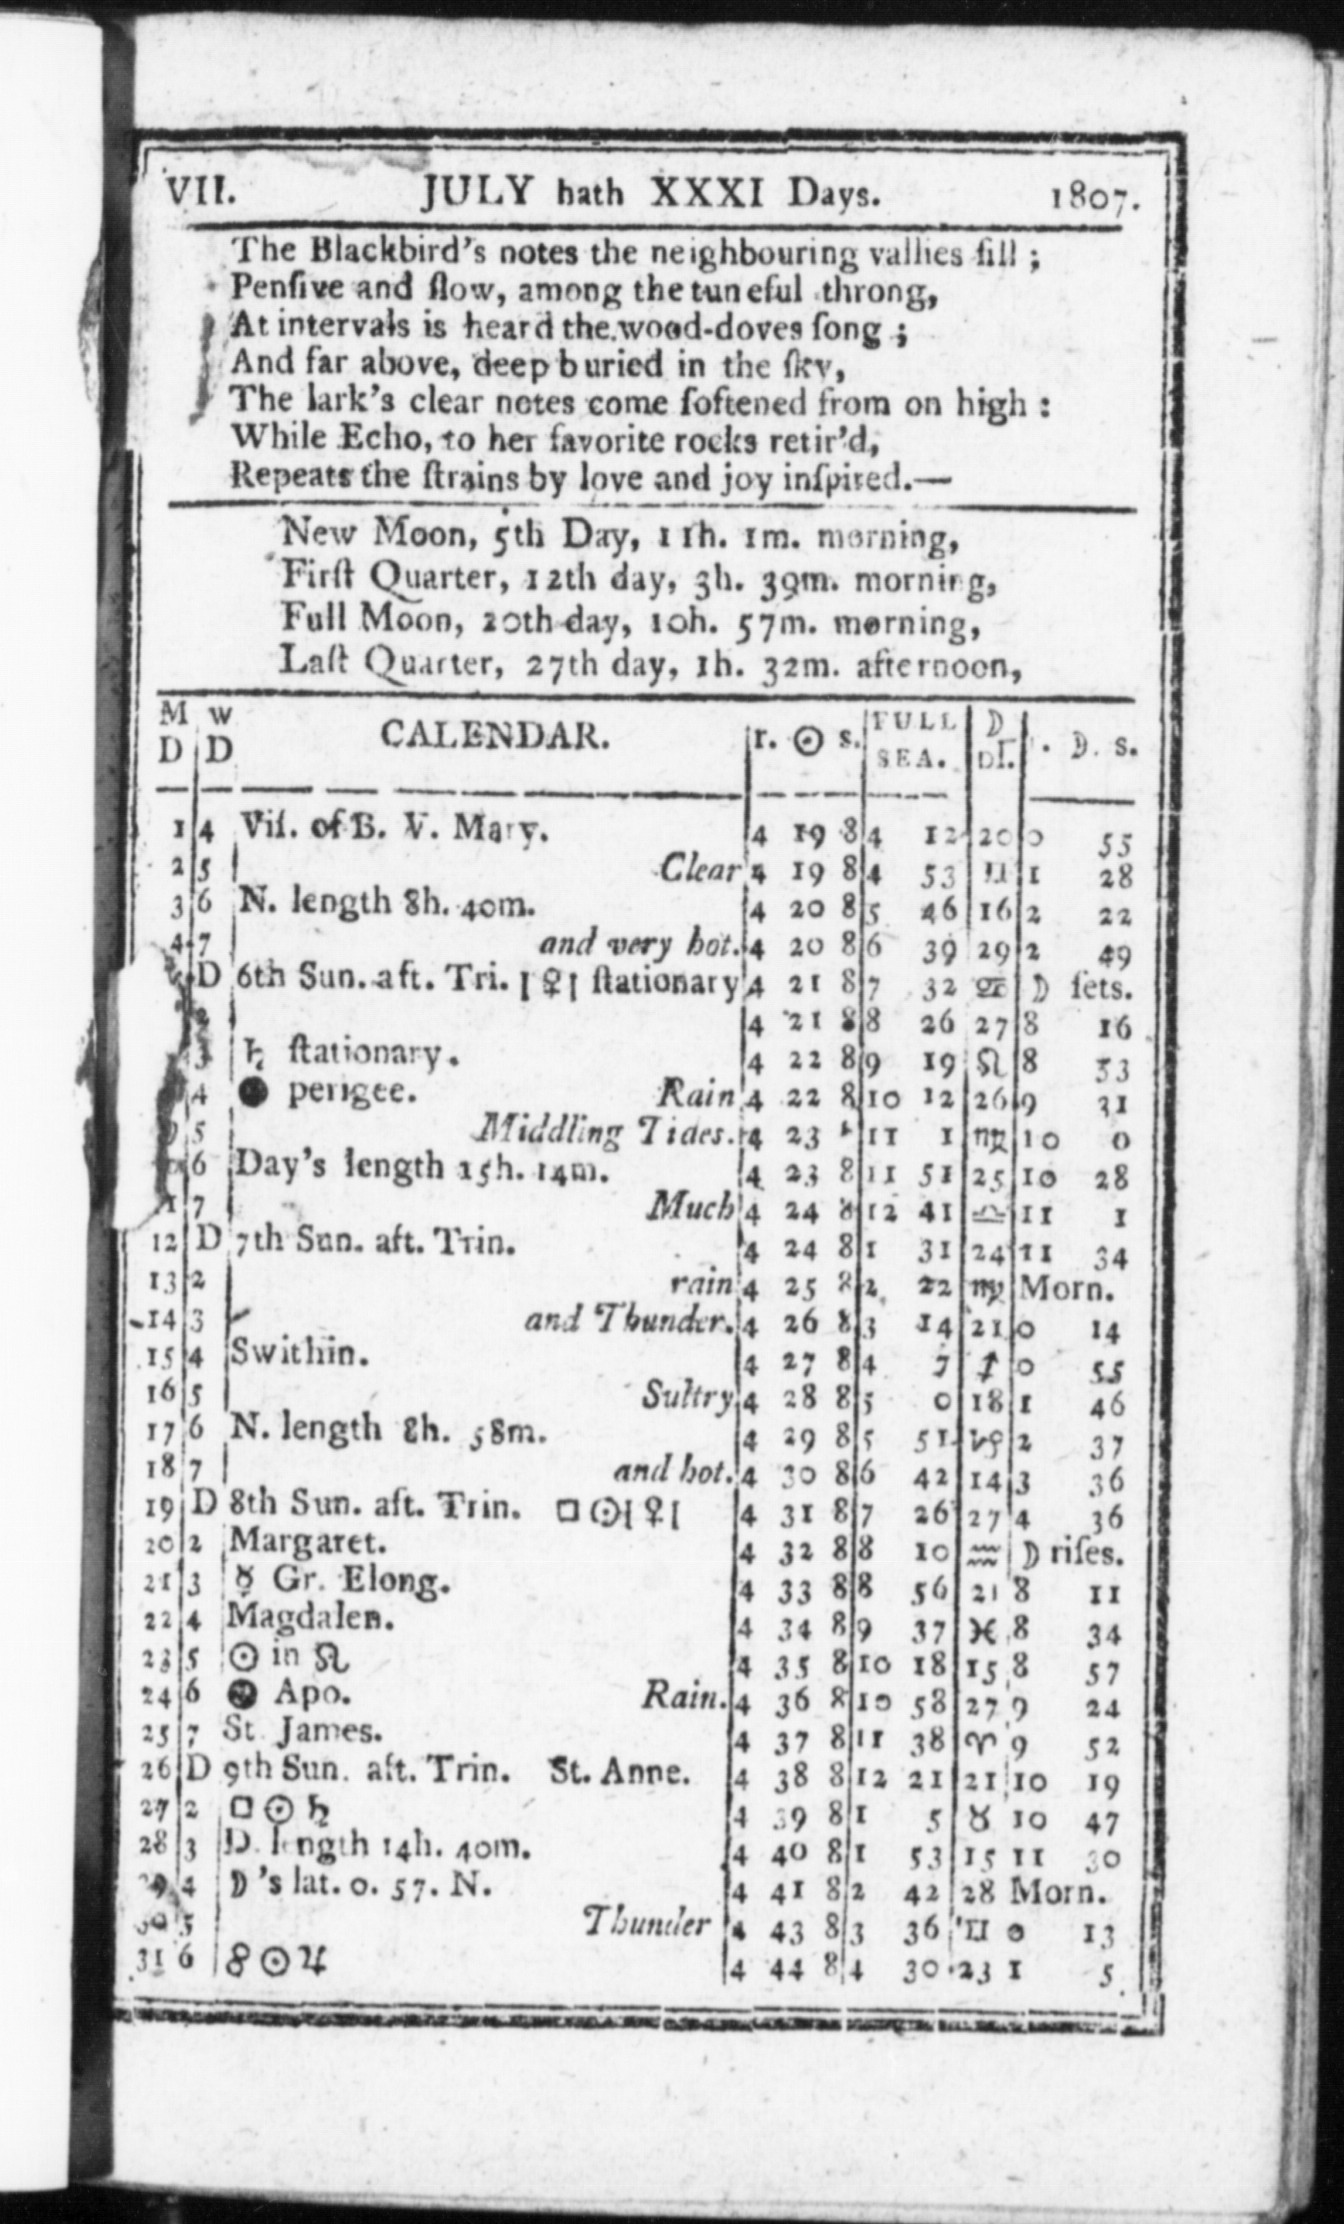 VII. JULY hath XXXI Days. 1807.
The Blackbird's notes the neighbouring vallies fill ;
Penſive and ſlow, among the tuneful throng,
At intervals is heard the wood-doves ſong ;
And far above, deep buried in the ſky,
The lark's clear notes come ſoftened from on high :
While Echo, to her favorite rocks retir'd,
Repeats the ſtrains by love and joy inſpired.—
New Moon, 5th Day, 11h. 1m. morning,
Firſt Quarter, 12th day, 3h. 39m. morning,
Full Moon, 20th day, 10h. 57m. morning,
Laſt Quarter, 27th day, 1h. 32m. afternoon,
M W CALENDAR. r. ☉ s. FULL ☽ . ☽. s.
D D SEA. pſ.
1 4 Viſ. of B. V. Mary. 4 19 8 4 12 20 0 55
2 5 Clear 4 19 8 4 53 ♊ 1 28
3 6 N. length 8h. 40m. 4 20 8 5 46 16 2 22
4 7 and very hot. 4 20 8 6 39 29 2 49
D 6th Sun. aft. Tri. [♀] ſtationary 4 21 8 7 32 ♋ ☽ ſets.
2 4 21 8 8 26 27 8 16
3 ♄ ſtationary. 4 22 8 9 19 ♌ 8 53
4 ● perigee. Rain 4 22 8 10 12 26 9 31
5 Middling Tides. 4 23 11 1 ♍ 10 0
6 Day's length 15h. 14m. 4 23 8 11 51 25 10 28
1 7 Much 4 24 8 12 41 ♎ 11 1
12 D 7th Sun. aft. Trin. 4 24 8 1 31 24 11 34
13 2 rain 4 25 8 2 22 ♏ Morn.
14 3 and Thunder. 4 26 8 3 14 21 0 14
15 4 Swithin. 4 27 8 4 7 ♐ 0 55
16 5 Sultry 4 28 8 5 0 18 1 46
17 6 N. length 8h. 58m. 4 29 8 5 51 ♑ 2 37
18 7 and hot. 4 30 8 6 42 14 3 36
19 D 8th Sun. aft. Trin. □ ☉ [♀] 4 31 8 7 26 27 4 36
20 2 Margaret. 4 32 8 8 10 ♒ ☽ riſes.
21 3 ☿ Gr. Elong. 4 33 8 8 56 21 8 11
22 4 Magdalen. 4 34 8 9 37 ♓ 8 34
23 5 ☉ in ♌ 4 35 8 10 18 15 8 57
24 6 ● Apo. Rain. 4 36 8 10 58 27 9 24
25 7 St. James. 4 37 8 11 38 ♈ 9 52
26 D 9th Sun. aft. Trin. St. Anne. 4 38 8 12 21 21 10 19
27 2 □ ☉ ♄ 4 39 8 1 5 ♉ 10 47
28 3 D. length 14h. 40m. 4 40 8 1 53 15 11 30
29 4 ☽'s lat. 0. 57. N. 4 41 8 2 42 28 Morn.
30 5 Thunder 4 43 8 3 36 ♊ 0 13
31 6 ☍ ☉ ♃ 4 44 8 4 30 23 1 5